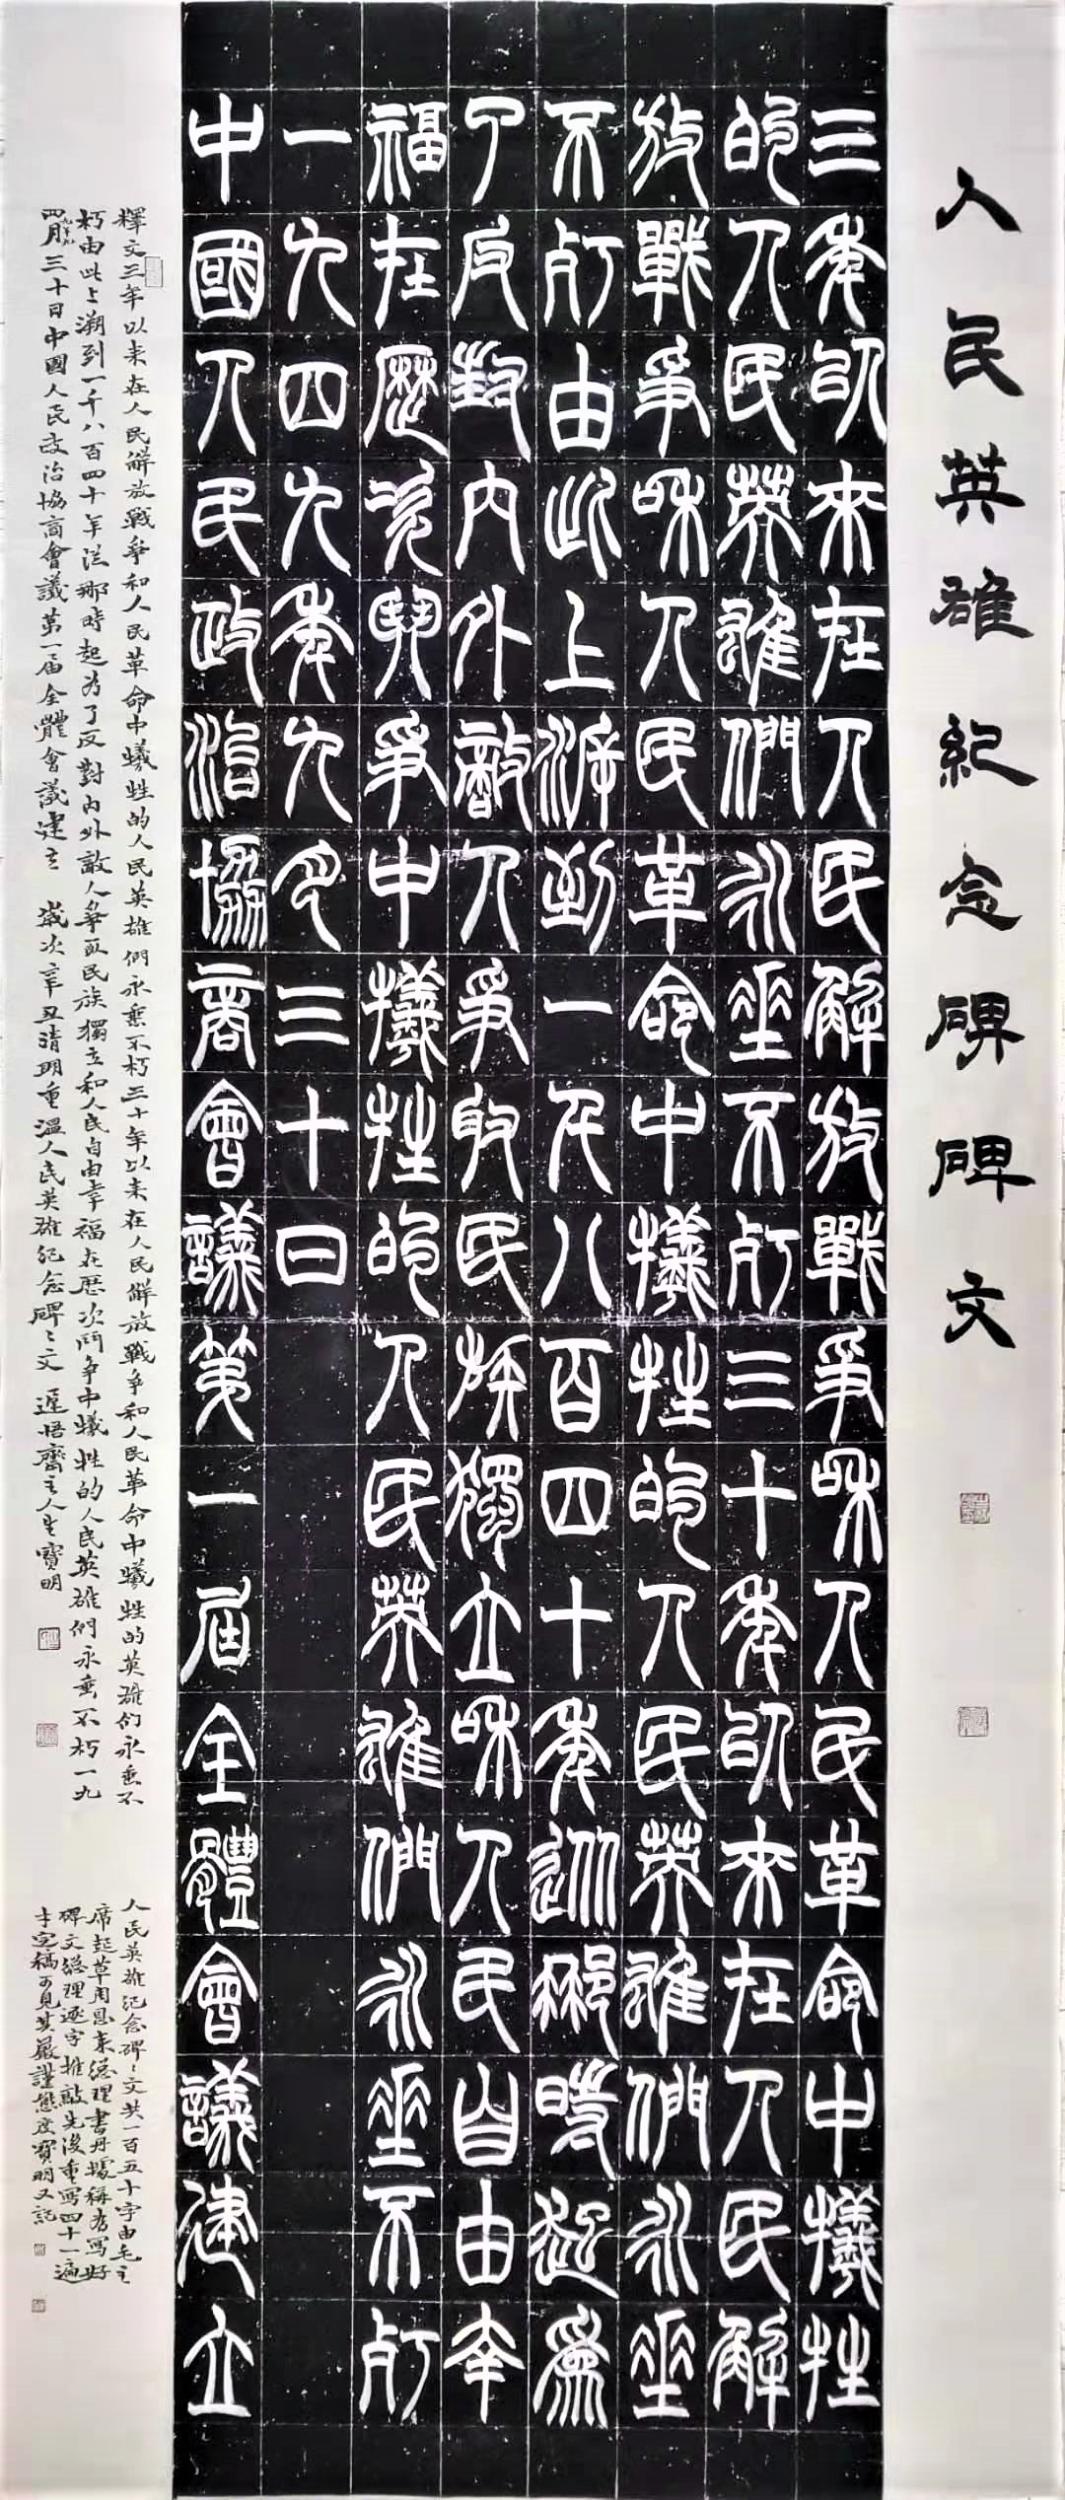 人民英雄紀念碑碑文
三年以来在人民解放戰爭和人民革命中犧牲
的人民英雄們永垂不朽三十年以来在人民解
放戰爭和人民革命中犧牲的人民英雄們永垂
不朽由此上溯到一千八百四十年從那時起為
了反對内外敵人爭取民族獨立和人民自由幸
福在歷次鬥爭中犧牲的人民英雄們永垂不朽
一九四九年九月三十日
中國人民政治協商會議第一屆全體會議建立
釋文三年以来在人民解放戰爭和人民革命中犧牲的人民英雄們永垂不朽三十年以来在人民解放戰爭和人民革命中犧牲的英雄们永垂不
朽由此上溯到一千八百四十年從那時起為了反對内外敵人爭取民族獨立和人民自由幸福在歷次鬥爭中犧牲的人民英雄們永垂不朽一九
四九年九月三十日中國人民政治協商會議第一屆全體會議建立 歲次辛丑清明重温人民英雄纪念碑之文 遲悟齋主人生寶明
人民英雄纪念碑之文共一百五十字由毛主
席起草周恩来總理書丹據稱為寫好
碑文總理逐字推敲先後重寫四十一遍
才定稿可見其嚴謹態度寶明又記